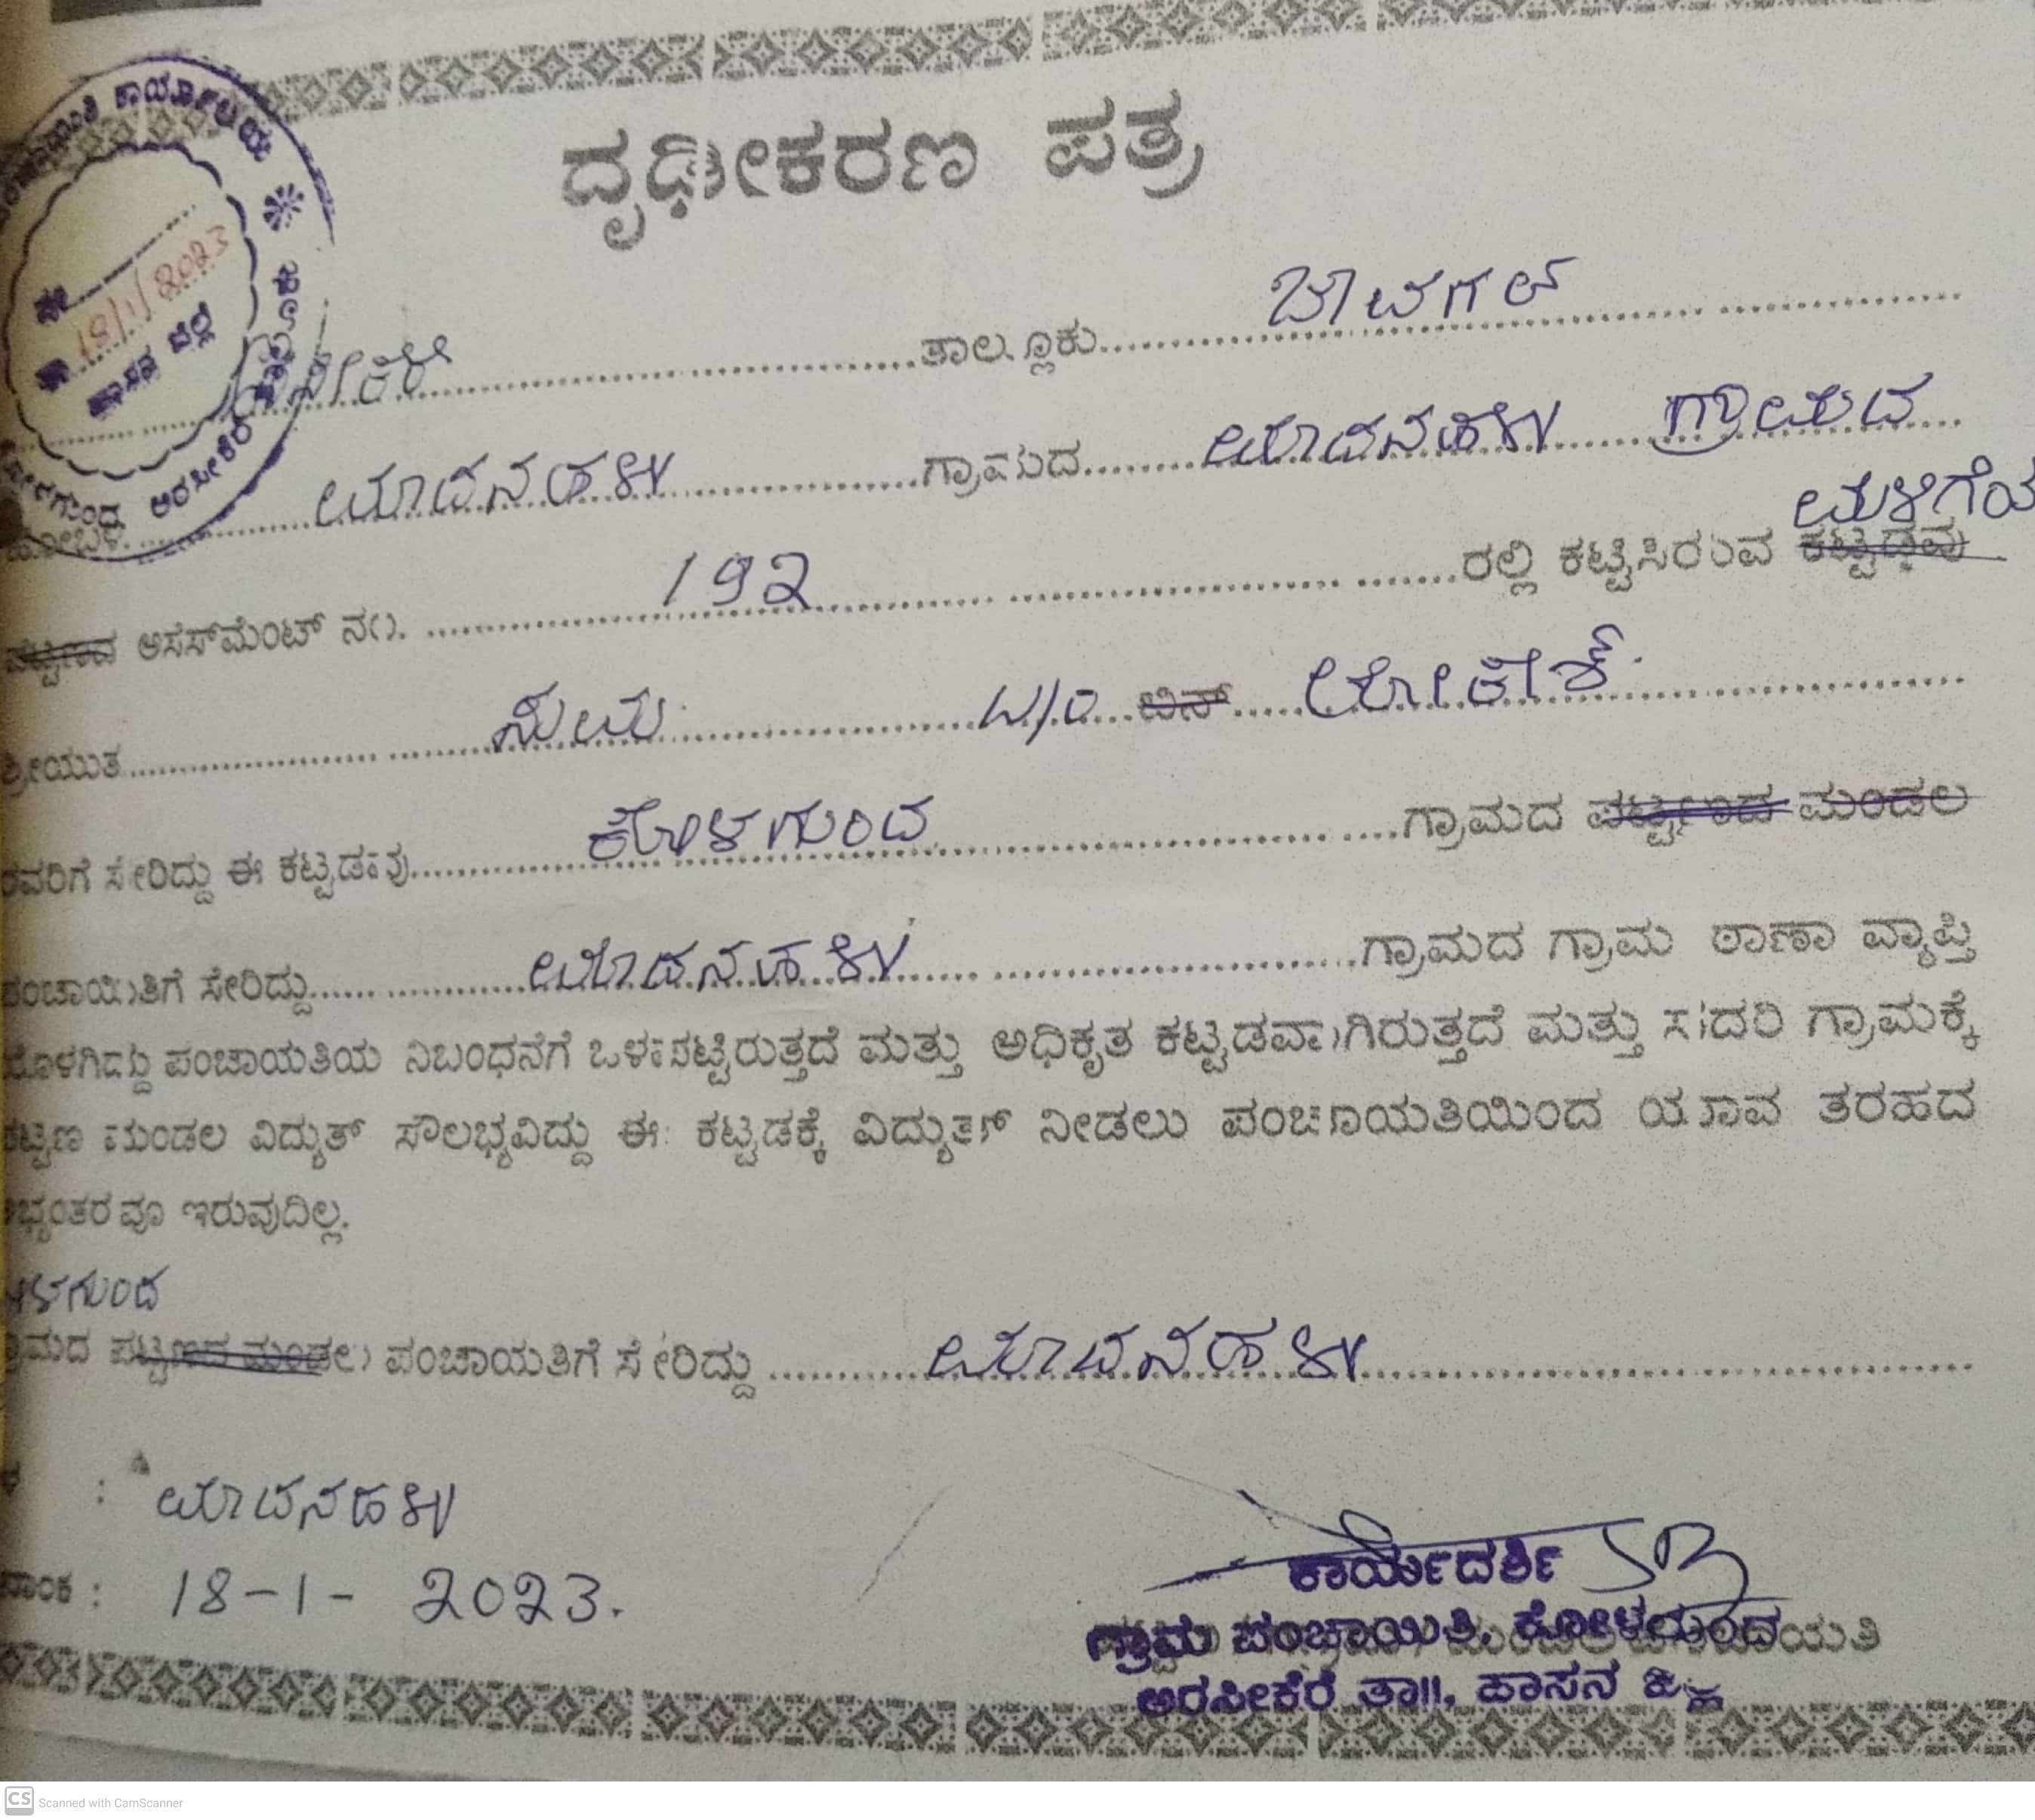 ಕಾರ್ಯಾಲಯ
18/1/2023
ಹಾಸನ ಜಿಲ್ಲೆ
ಅರಸೀಕೆರೆ
ದೃಢೀಕರಣ ಪತ್ರ
ತಾಲ್ಲೂಕು ಜಾವಗಲ್
ಹೋಬಳಿ ಯಾದನಹಳ್ಳಿ ಗ್ರಾಮದ ಯಾದನಹಳ್ಳಿ ಗ್ರಾಮದ
ಪಟ್ಟಣದ ಅಸೆಸ್‌ಮೆಂಟ್ ನಂ. 192 ರಲ್ಲಿ ಕಟ್ಟಿಸಿರುವ ಕಟ್ಟಡವು ಮಳಿಗೆಯ
ಶ್ರೀಯುತ ಸುಮ W/O ಬಿನ್ ಲೋಕೇಶ್
ರವರಿಗೆ ಸೇರಿದ್ದು ಈ ಕಟ್ಟಡವು ಕೋಳಗುಂದ ಗ್ರಾಮದ ಪಟ್ಟಣದ ಮಂಡಲ
ಪಂಚಾಯಿತಿಗೆ ಸೇರಿದ್ದು ಯಾದನಹಳ್ಳಿ ಗ್ರಾಮದ ಗ್ರಾಮ ಠಾಣಾ ವ್ಯಾಪ್ತಿ
ಯೊಳಗಿದ್ದು ಪಂಚಾಯತಿಯ ನಿಬಂಧನೆಗೆ ಒಳಪಟ್ಟಿರುತ್ತದೆ ಮತ್ತು ಅಧಿಕೃತ ಕಟ್ಟಡವಾಗಿರುತ್ತದೆ ಮತ್ತು ಸದರಿ ಗ್ರಾಮಕ್ಕೆ
ಪಟ್ಟಣ ಮಂಡಲ ವಿದ್ಯುತ್ ಸೌಲಭ್ಯವಿದ್ದು ಈ ಕಟ್ಟಡಕ್ಕೆ ವಿದ್ಯುತ್ ನೀಡಲು ಪಂಚಾಯತಿಯಿಂದ ಯಾವ ತರಹದ
ಅಭ್ಯಂತರವೂ ಇರುವುದಿಲ್ಲ.
ಳಗುಂದ
ಗ್ರಾಮದ ಪಟ್ಟಣದ ಮಂಡಲ ಪಂಚಾಯತಿಗೆ ಸೇರಿದ್ದು ಯಾದನಹಳ್ಳಿ
: ಯಾದನಹಳ್ಳಿ
ನಾಂಕ : 18-1-2023.
ಕಾರ್ಯದರ್ಶಿ
ಗ್ರಾಮ ಪಂಚಾಯಿತಿ, ಕೋಳಗುಂದ
ಅರಸೀಕೆರೆ ತಾ||, ಹಾಸನ ಜಿಲ್ಲೆ
CS Scanned with CamScanner